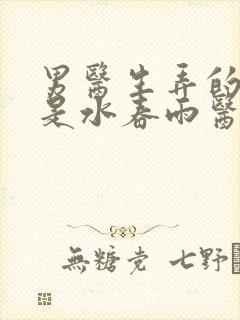 男醫生弄的
是水春雨醫
無糖党 七野